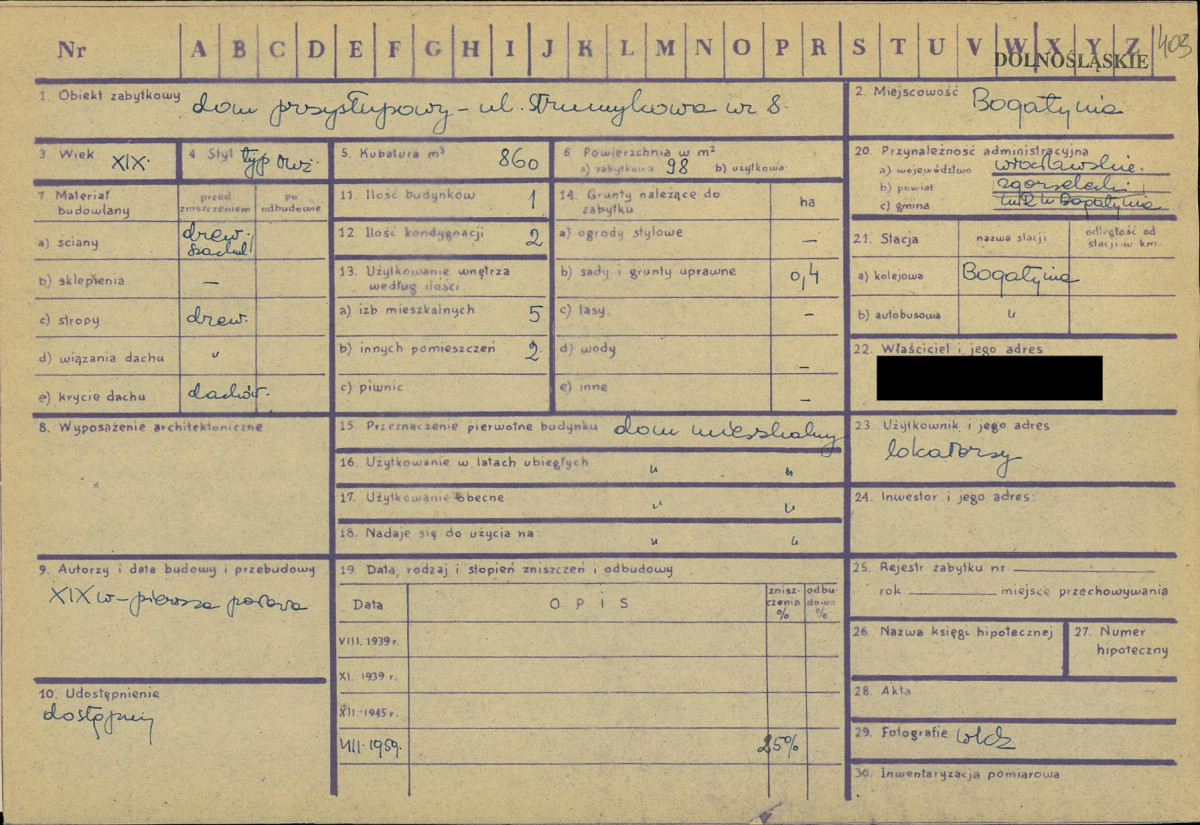 Nr A B C D E F G H I J K L M N O P R S T U V W X Y Z 403
DOLNOŚLĄSKIE
1. Obiekt zabytkowy dom przysłupowy – ul. Strumykowa nr 8.
2. Miejscowość Bogatynia
3 Wiek XIX.
4 Styl typ owż.
5. Kubatura m³ 860
6 Powierzchnia w m²
a) zabytkowa 98 b) użytkowa
20. Przynależność administracyjna
a) województwo wrocławskie
b) powiat zgorzelecki
c) gmina w Bogatynia
7. Materiał budowlany
przed zniszczeniem
po odbudowie
a) ściany drew. szachul.
b) sklepienia –
c) stropy drew.
d) wiązania dachu "
e) krycie dachu dachów.
11. Ilość budynków 1
12. Ilość kondygnacji 2
13. Użytkowanie wnętrza
według ilości
a) izb mieszkalnych 5
b) innych pomieszczeń 2
c) piwnic
14. Grunty należące do
zabytku
ha
a) ogrody stylowe –
b) sady i grunty uprawne 0,4
c) lasy –
d) wody –
e) inne –
21. Stacja
nazwa stacji
odległość od
stacji w km.
a) kolejowa Bogatynia
b) autobusowa "
22. Właściciel i jego adres
8. Wyposażenie architektoniczne
15. Przeznaczenie pierwotne budynku dom mieszkalny
16. Użytkowanie w latach ubiegłych " "
17. Użytkowanie obecne " "
18. Nadaje się do użycia na: " "
23. Użytkownik i jego adres
lokatorzy
24. Inwestor i jego adres:
9. Autorzy i data budowy i przebudowy
XIX w – pierwsza połowa
10. Udostępnienie
dostępny
19 Data, rodzaj i stopień zniszczeń i odbudowy
Data OPIS
znisz-
czenia
%
odbu-
dowa
%
VIII. 1939 r.
XI. 1939 r.
XII. 1945 r.
VIII. 1959. 25%
25. Rejestr zabytku nr
rok miejsce przechowywania
26. Nazwa księgi hipotecznej
27. Numer
hipoteczny
28. Akta
29. Fotografie wkz
30. Inwentaryzacja pomiarowa